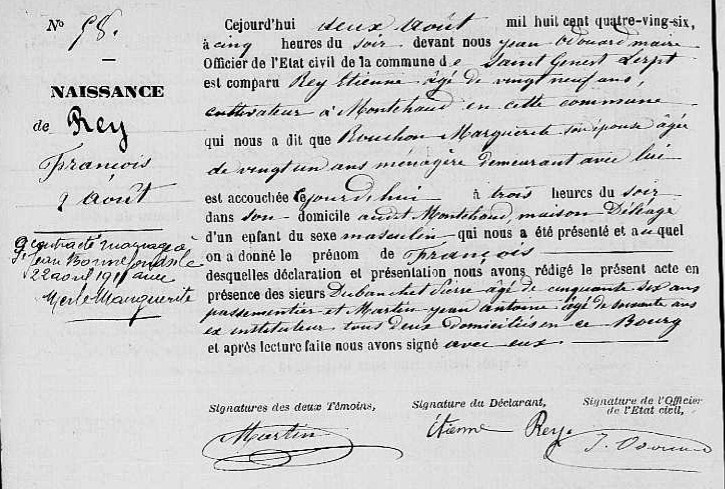 No 58.
NAISSANCE
de Rey
François
2 Août
a contracté mariage à
St Jean Bonnefonds le
22 avril 1911 avec
Merle Marguerite
Cejourd'hui deux Août mil huit cent quatre-ving-six,
à cinq heures du soir devant nous Jean Odouard maire
Officier de l'Etat civil de la commune de Saint Genest Lerpt
est comparu Rey Etienne âgé de vingt neuf ans,
cultivateur à Montchaud en cette commune
qui nous a dit que Bouchon Marguerite son épouse âgée
de vingt un ans ménagère demeurant avec lui
est accouchée cejourd'hui à trois heures du soir
dans son domicile audit Montchaud, maison Déléage
d'un enfant du sexe masculin qui nous a été présenté et auquel
on a donné le prénom de François
desquelles déclaration et présentation nous avons rédigé le présent acte en
présence des sieurs Dubanchet Pierre âgé de cinquante six ans
passementier et Martin Jean Antoine âgé de ans
ex instituteur tous deux domiciliés en ce Bourg
et après lecture faite nous avons signé avec eux.
Signatures des deux Témoins, Signature du Déclarant, Signature de l'Officier
de l'Etat civil,
Martin Etienne Rey J. Odouard